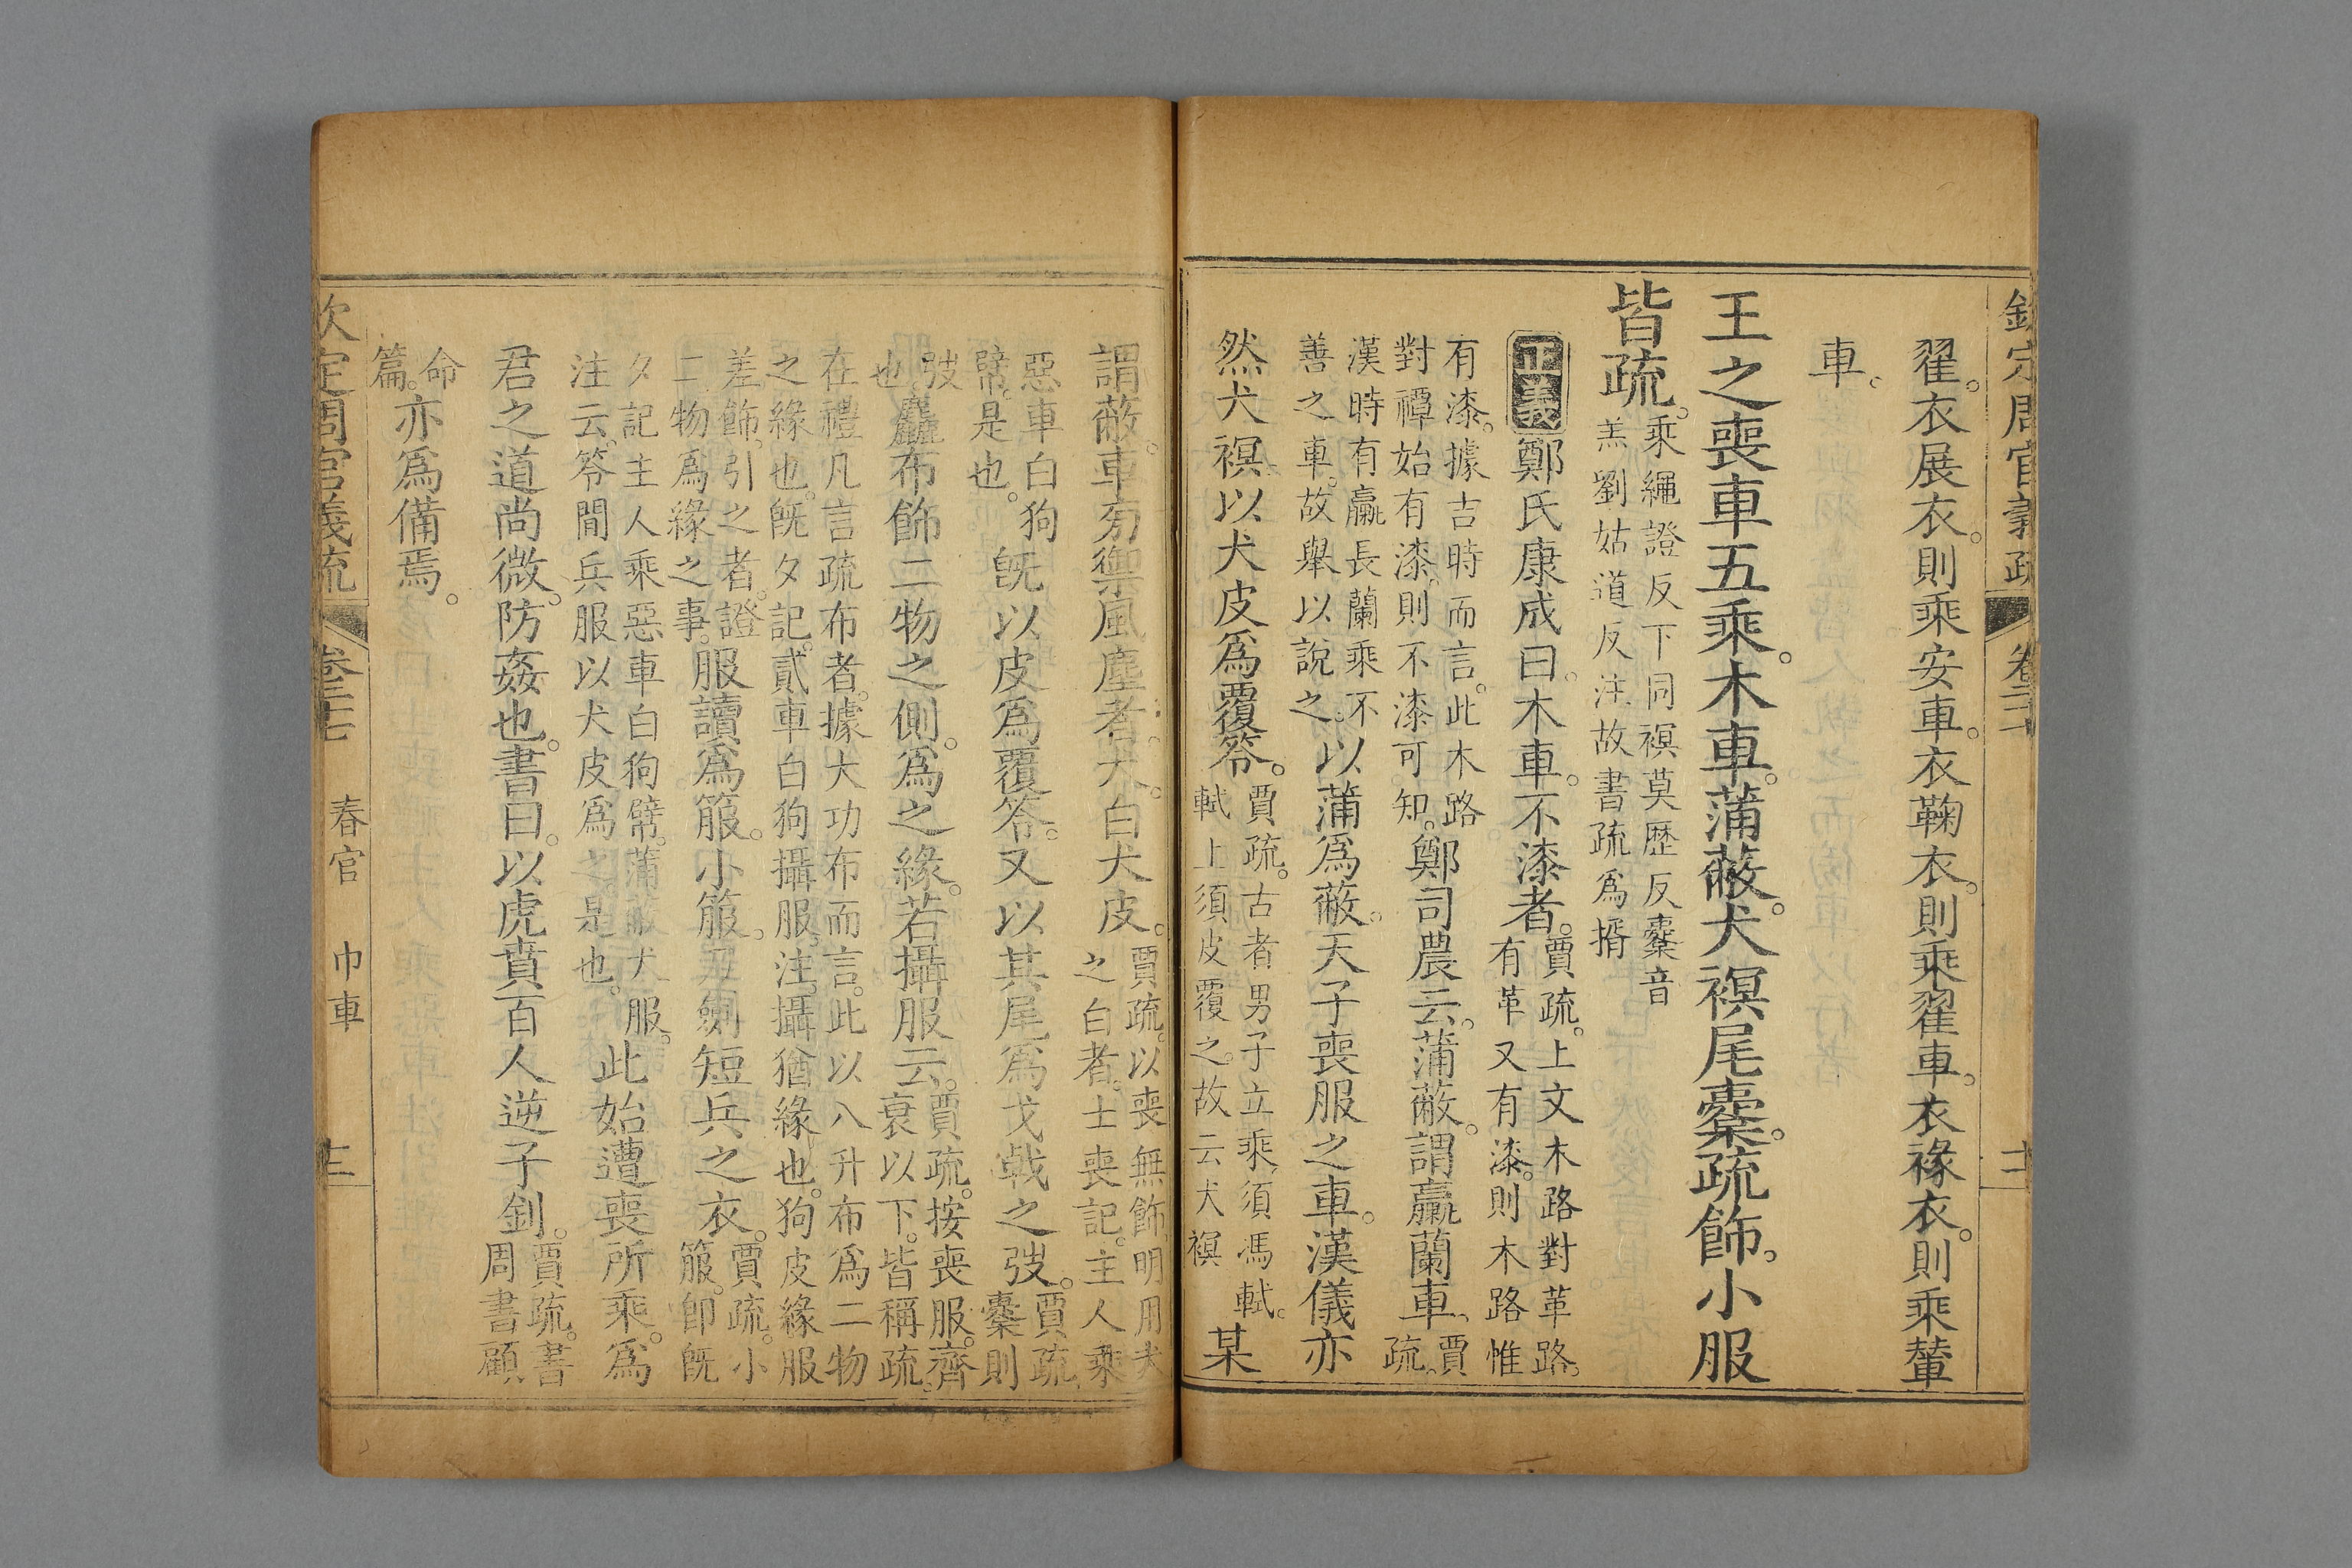 欽定周官義疏
翟。衣展衣。則乘安車。衣鞠衣。則乘翟車。衣緣衣。則乘輦
車。
王之喪車五乘。木車。蒲蔽。犬𧜀尾櫜。疏飾。小服
皆疏。
乘繩證反下同𧜀莫歷反櫜音
羔劉姑道反注故書疏爲揟
正義
鄭氏康成曰。木車。不漆者。
賈疏。上文木路對革路。
有革又有漆。則木路惟
有漆。據吉時而言。此木路
對禫始有漆。則不漆可知。
鄭司農云。蒲蔽。謂臝蘭車。
賈
疏。
漢時有臝長蘭乘不
善之車。故舉以說之。
以蒲爲蔽。天子喪服之車。漢儀亦
然犬𧜀以犬皮爲覆笭。
賈疏。古者男子立乘。須馮軾。
軾上須皮覆之。故云犬𧜀
某
謂蔽。車旁禦風塵者。犬。白犬皮。
賈疏。以喪無飾。明用犬
之白者。士喪記。主人乘
惡車白狗
幦。是也。
旣以皮爲覆笭。又以其尾爲戈戟之弢。
賈疏。
櫜則
弢
也。
麤布飾二物之側。爲之緣。若攝服云。
賈疏。按喪服。齊
衰以下。皆稱疏。
在禮凡言疏布者。據大功布而言。此以八升布爲二物
之緣也。旣夕記。貳車白狗攝服。注。攝猶緣也。狗皮緣服
差飾。引之者。證
二物爲緣之事。
服讀爲箙。小箙。刀劍短兵之衣。
賈疏。小
箙。卽旣
夕記主人乘惡車白狗幦。蒲蔽犬服。
注云。笭間兵服以犬皮爲之。是也。
此始遭喪所乘。爲
君之道尚微。防姦也。書曰。以虎賁百人逆子釗。
賈疏。書
周書顧
命
篇。
亦爲備焉。
欽定周官義疏
卷二十七
春官
巾車